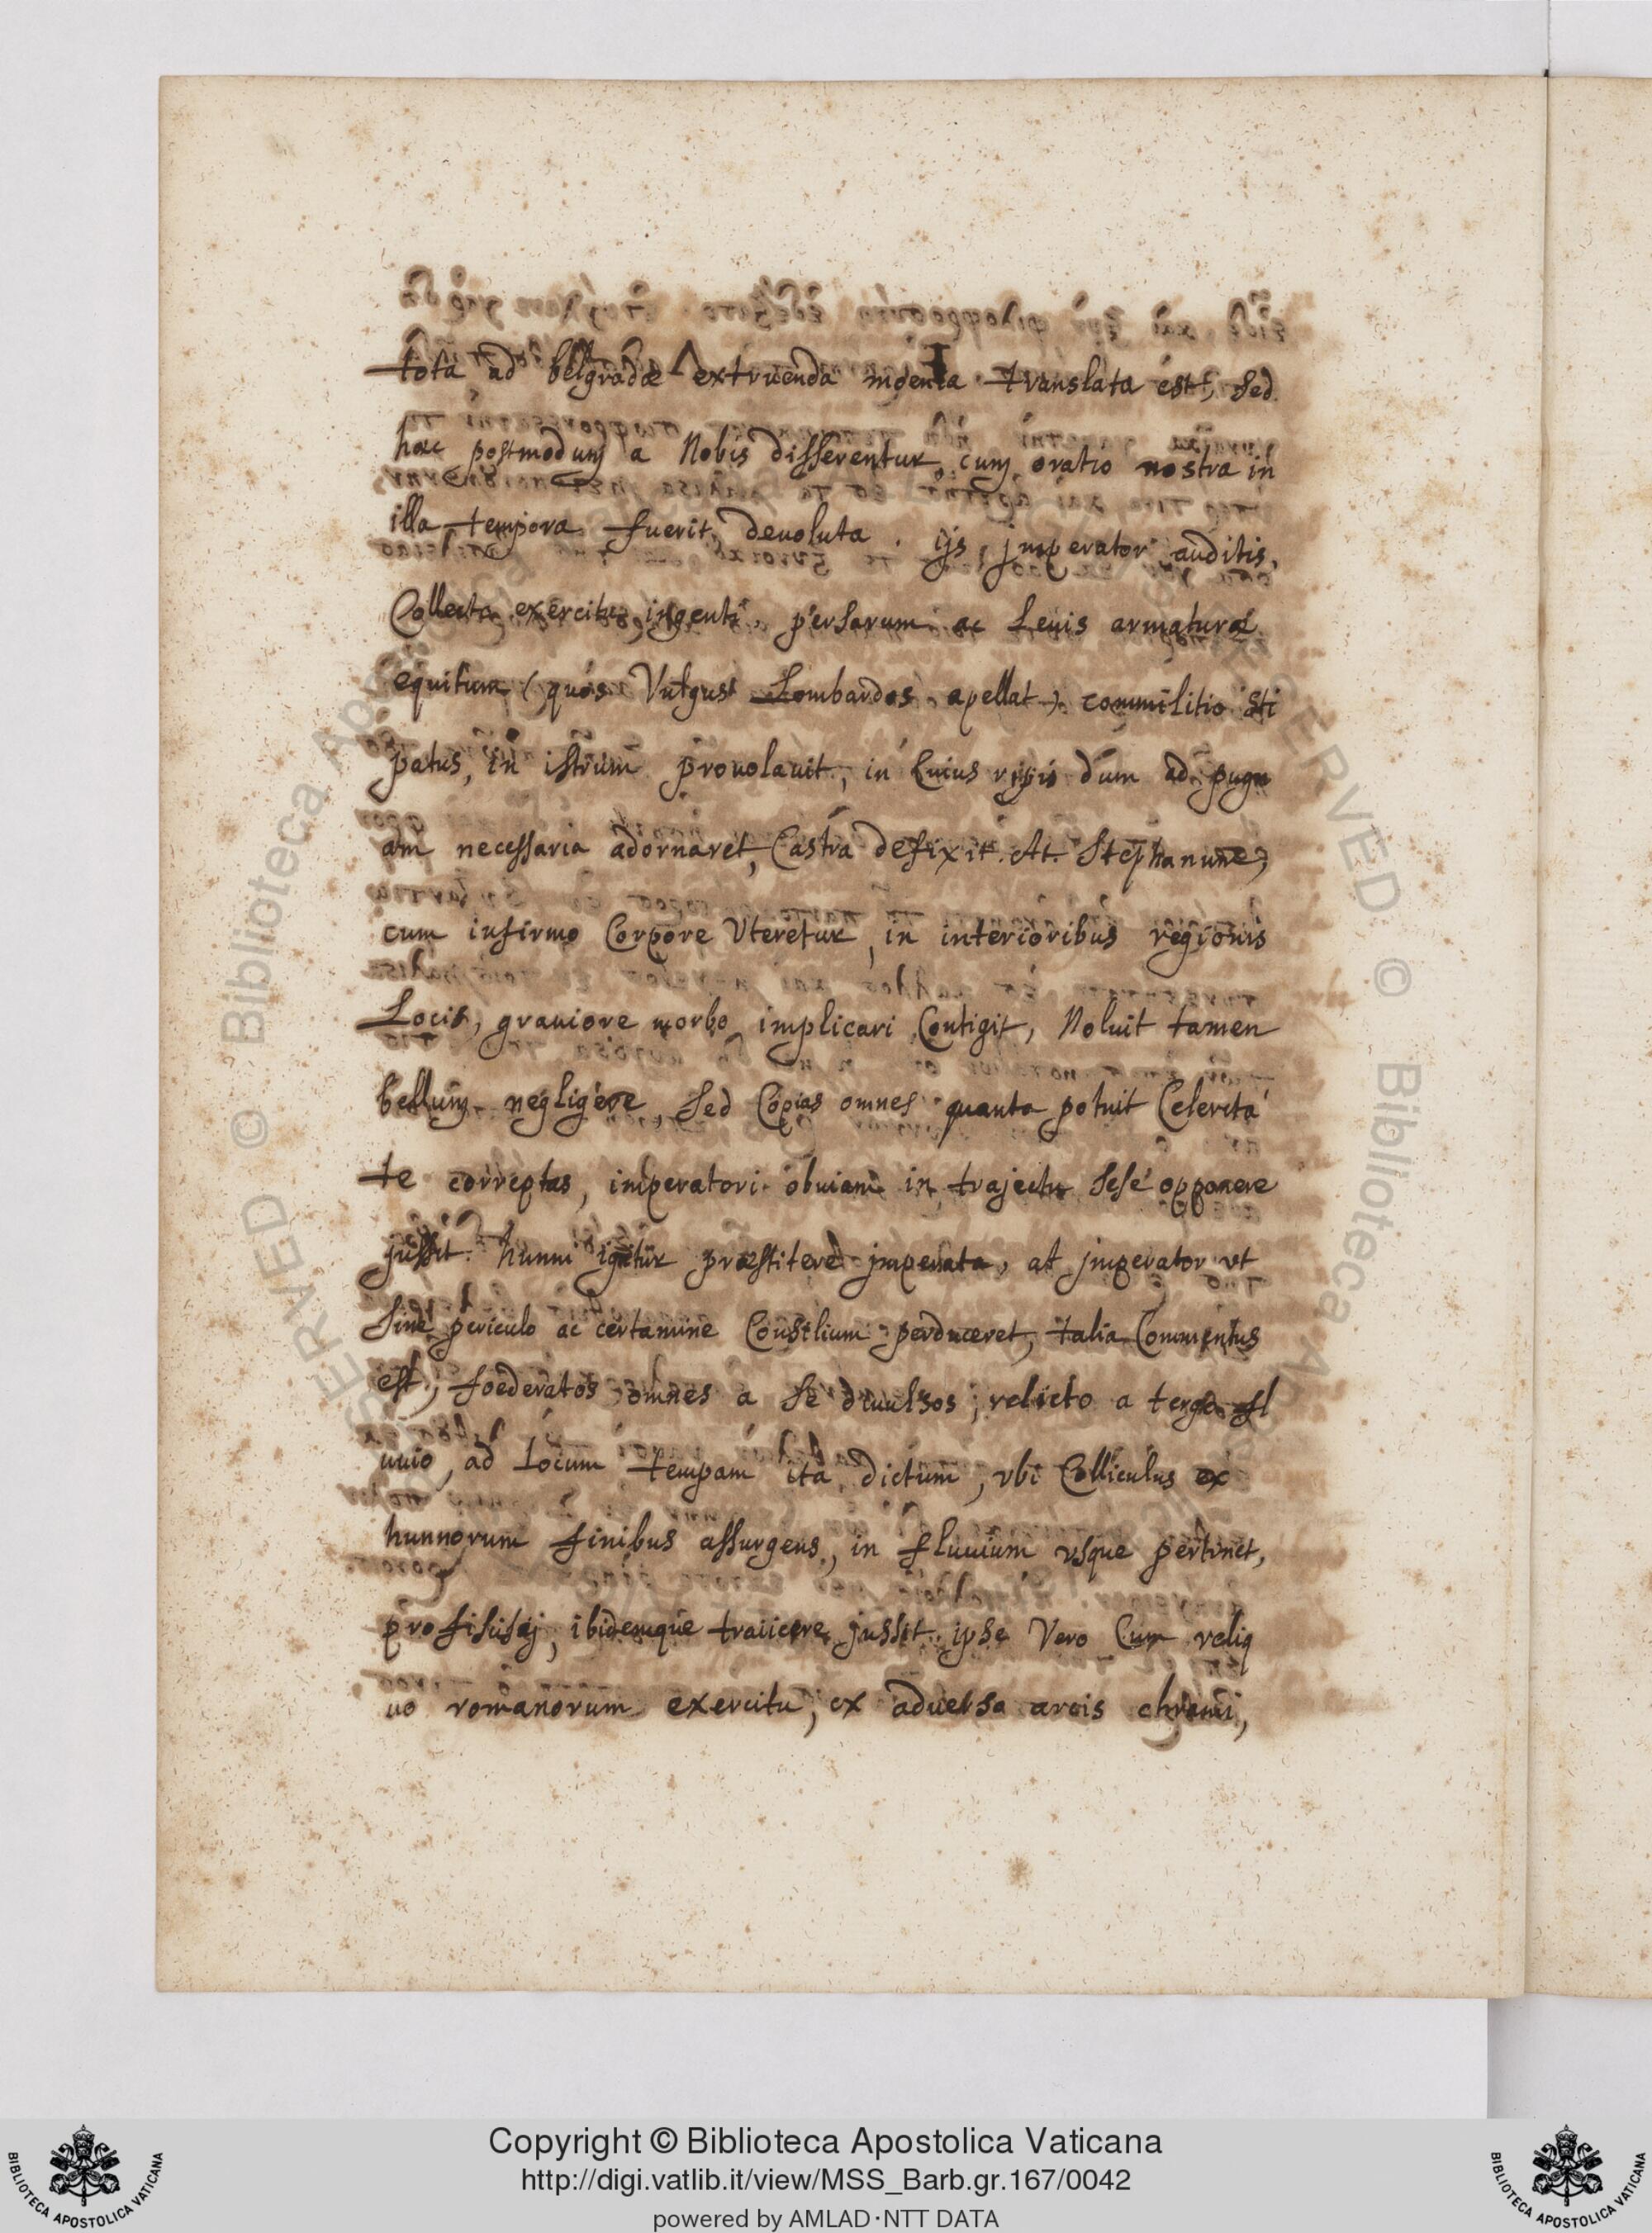 tota ad belgradæ extruenda mgenia translata est, sed
hæc postmodum a Nobis differentur cum oratio nostra in
illa tempora fuerit devoluta. ijs jmperator auditis,
Collecta exercitu ingenti, persarum ac Levis armaturæ
equitum (quos Vulgus Lombardos apellat) commilitio sti
patus, in istrum provolavit, in Cuius ripis dum ad pugn
am necessaria adornaret, Castra defixit. At. Stephanum,
cum infirmo Corpore Vteretur, in interioribus regionis
Locis, graviore morbo implicari Contigit, Noluit tamen
bellum negligere, sed Copias omnes quanta potuit Celerita
te correptas, imperatori obviam in trajectu sese opponere
jussit. hunni igitur præstitere jmperata, at jmperator vt
sine periculo ac certamine Consilium perduceret, talia Commentus
est, foederatos omnes a se divulsos, relicto a tergo fl
uvio, ad Locum tempam ita dictum, vbi Colliculus ex
hunnorum finibus assurgens, in fluvium vsque pertinet,
ibidemque traiicere jussit. ipse Vero Cum reliq
uo romanorum exercitu, ex adversa arcis chrami,
Copyright © Biblioteca Apostolica Vaticana
http://digi.vatlib.it/view/MSS_Barb.gr.167/0042
powered by AMLAD·NTT DATA